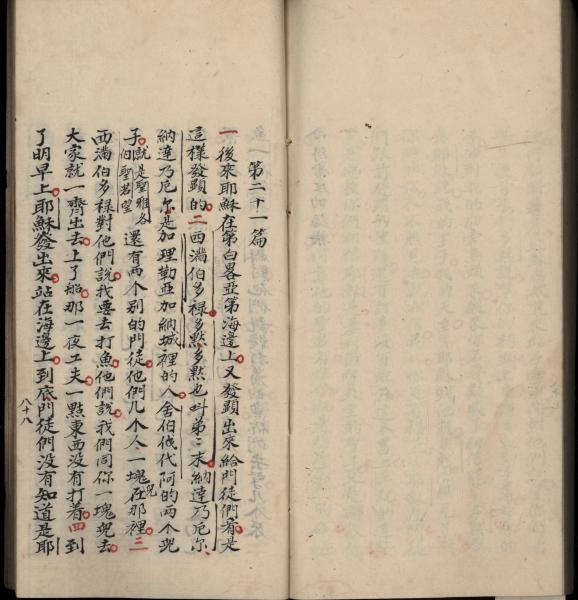 第二十一篇
一後來耶穌在第白畧亞第海邊上又發顯出來給門徒們看是
這樣發顕的二西滿伯多祿多黙多黙也呌弟弟末納達乃厄尔
納達乃厄尔是加理勒亞加納城裡的人舍伯伐代阿的两个兒
子就是聖雅各伯聖若望還有两个别的門徒他們几个人一塊兒在那裡三
西滿伯多祿對他們說我要去打魚他們說我們同你一塊兒去
大家就一齊出去上了船那一夜工夫一點東西没有打着四到
了明早上耶穌發出來站在海邊上到底門徒們没有知道是耶
八十八